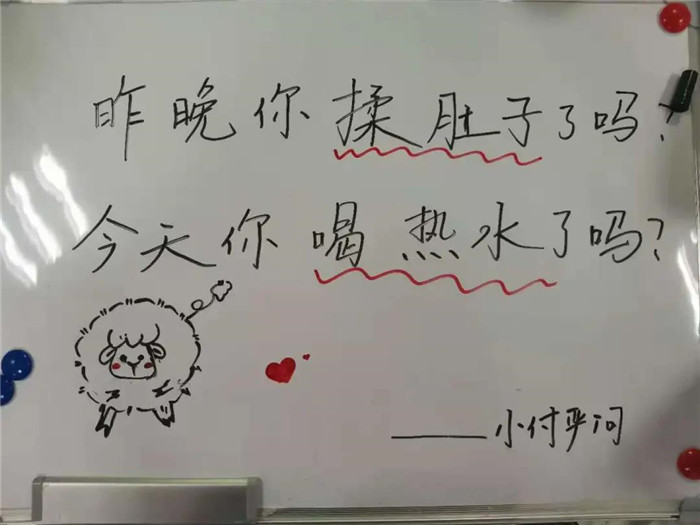 昨晚你揉肚子了吗?
今天你喝热水了吗?
——小付严问